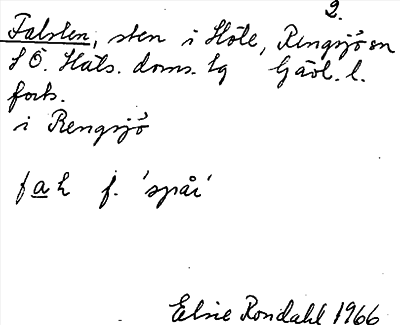 2.
Falsten, sten i Höle, Rengsjö sn
S Ö. Häls. doms. tg Gävl. l.
forts.
i Rengsjö
fah f. 'spår'
Elsie Rondahl 1966